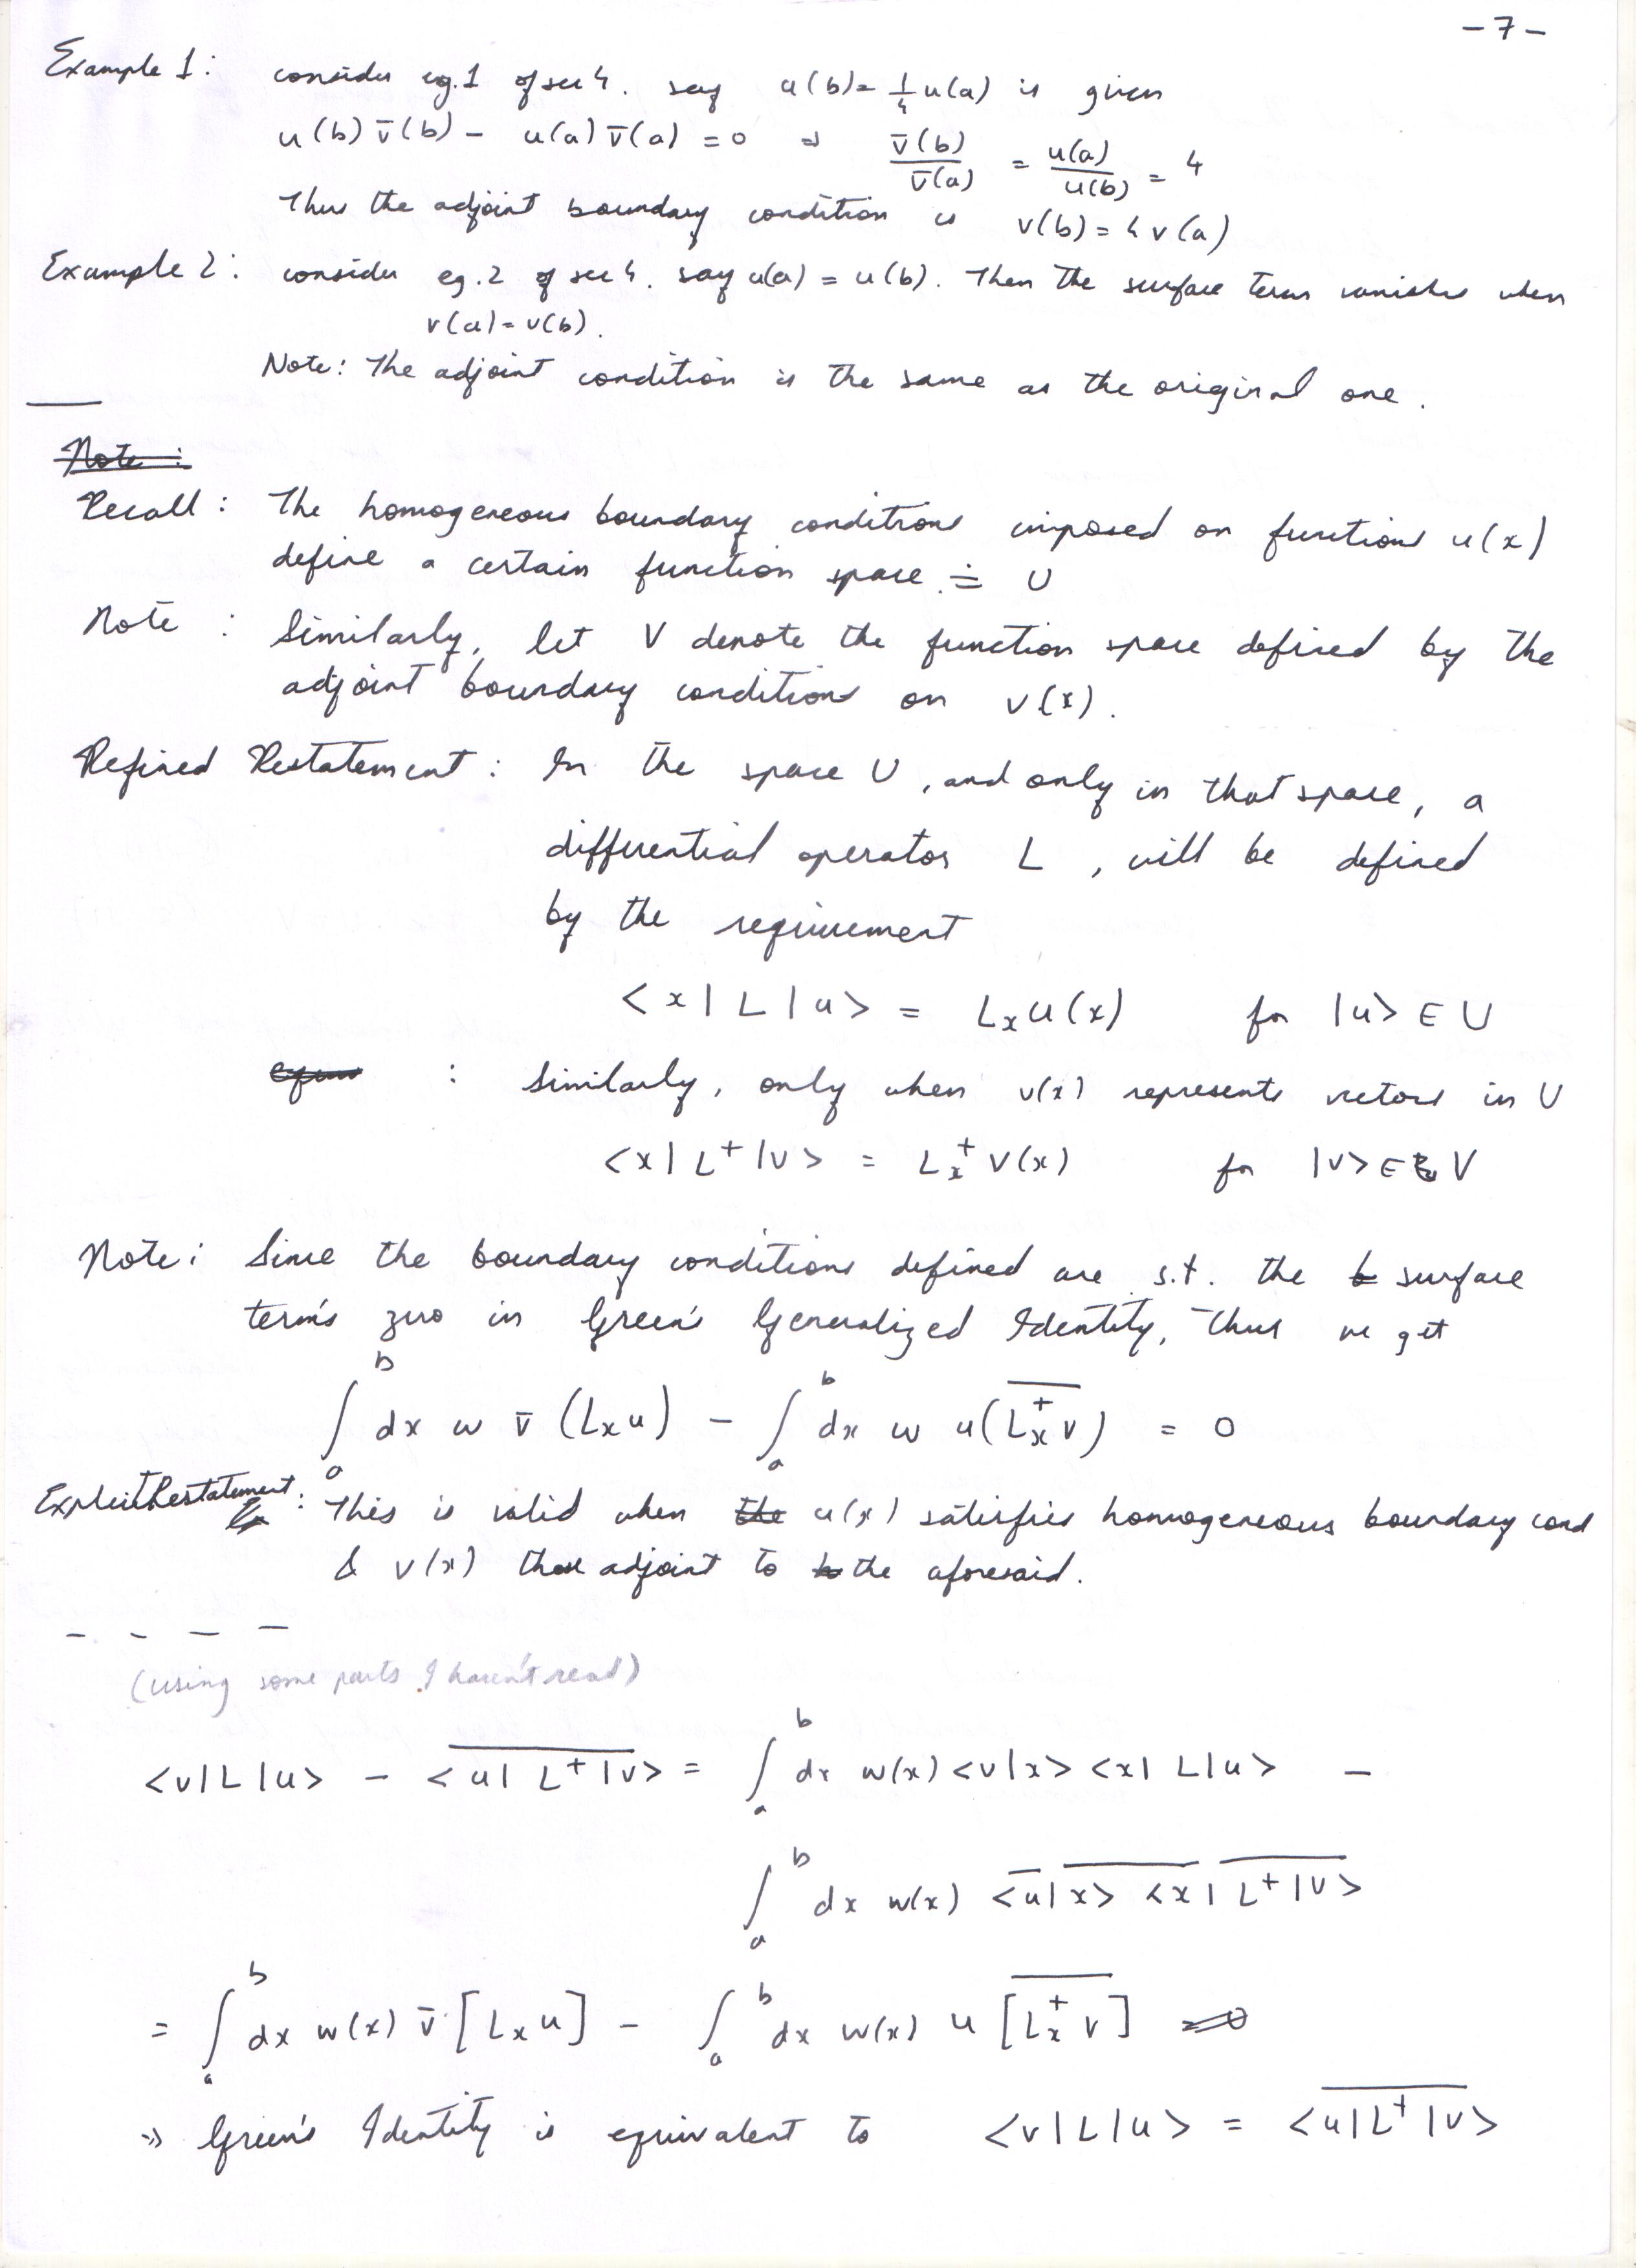 -7-
Example 1: consider eg.1 of sec 4. say u(b)=1/4 u(a) is given
u(b) v̄(b) - u(a) v̄(a) = 0 ⇒ v̄(b)/v̄(a) = u(a)/u(b) = 4
Thus the adjoint boundary condition is v(b)=4v(a)
Example 2: consider eg.2 of sec 4. say u(a) = u(b). Then the surface term vanishes when
v(a)=v(b).
Note: The adjoint condition is the same as the original one.
Note:
Recall: The homogeneous boundary conditions imposed on functions u(x)
define a certain function space ≐ U
Note : Similarly, let V denote the function space defined by the
adjoint boundary conditions on v(x).
Refined Restatement: In the space U, and only in that space, a
differential operator L, will be defined
by the requirement
<x|L|u> = Lₓu(x) for |u> ∈ U
: Similarly, only when v(x) represents vectors in V
<x|L⁺|v> = Lₓ⁺v(x) for |v> ∈ V
Note: Since the boundary conditions defined are s.t. the surface
term's zero in Green's Generalized Identity, thus we get
∫ₐᵇ dx w v̄ (Lₓu) - ∫ₐᵇ dx w u(\overline{Lₓ⁺v}) = 0
Explicit Restatement: This is valid when the u(x) satisfies homogeneous boundary cond
& v(x) those adjoint to the aforesaid.
(using some parts I haven't read)
<v|L|u> - \overline{<u|L⁺|v>} = ∫ₐᵇ dx w(x) <v|x> <x|L|u> -
∫ₐᵇ dx w(x) \overline{<u|x>} \overline{<x|L⁺|v>}
= ∫ₐᵇ dx w(x) v̄ [Lₓu] - ∫ₐᵇ dx w(x) u [\overline{Lₓ⁺v}] =0
⇒ Green's Identity is equivalent to <v|L|u> = \overline{<u|L⁺|v>}